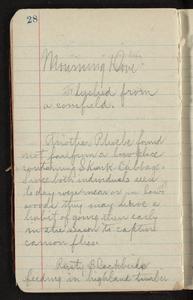 28
"Mourning" Dove
Flushed from
a cornfield.
Another Phoebe found
not far from a low place
containing Skunk Cabbage.
Since both individuals seen
to day were near or in low
woods they may have a
habit of going then early
in the season to capture
carrion flies.
Rusty Blackbirds
feeding in highland timber